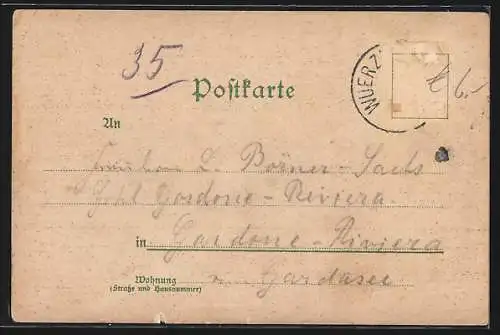 35
Postkarte
WUERZ
£ 6.-
An
L. Börner-Sachs
Gardone-Riviera.
in Gardone-Riviera
Wohnung
(Straße und Hausnummer)
am Gardasee